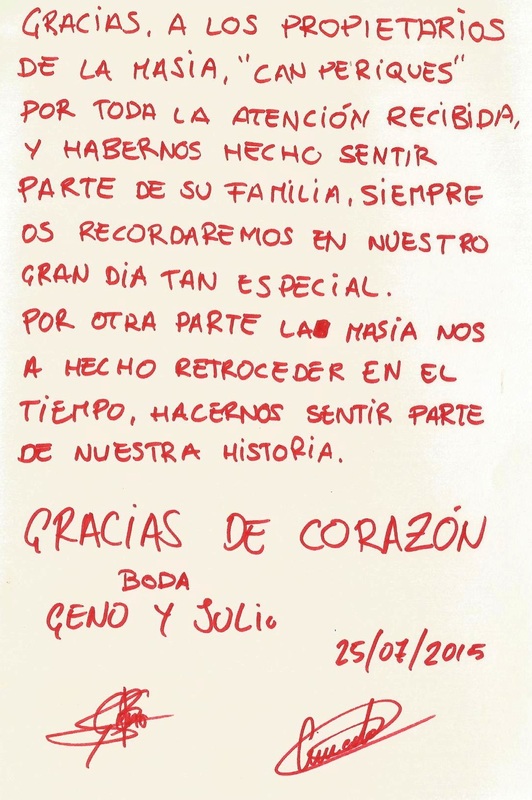 GRACIAS, A LOS PROPIETARIOS
DE LA MASIA, "CAN PERIQUES"
POR TODA LA ATENCIÓN RECIBIDA,
Y HABERNOS HECHO SENTIR
PARTE DE SU FAMILIA, SIEMPRE
OS RECORDAREMOS EN NUESTRO
GRAN DIA TAN ESPECIAL.
POR OTRA PARTE LA MASIA NOS
A HECHO RETROCEDER EN EL
TIEMPO, HACERNOS SENTIR PARTE
DE NUESTRA HISTORIA.
GRACIAS DE CORAZÓN
BODA
GENO Y JULIO
25/07/2015